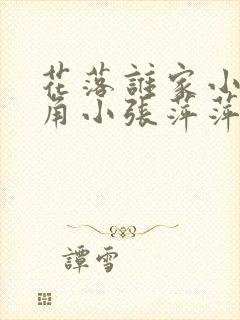 花落誰家小
角小張萍萍
譚雪